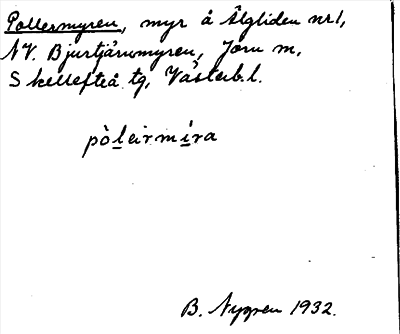 Pollermyren, myr å Älgliden nr 1,
NV. Bjurtjärnmyren, Jörn sn,
Skellefteå tg, Västerb. l.
pòleirmíra
B. Nygren 1932.